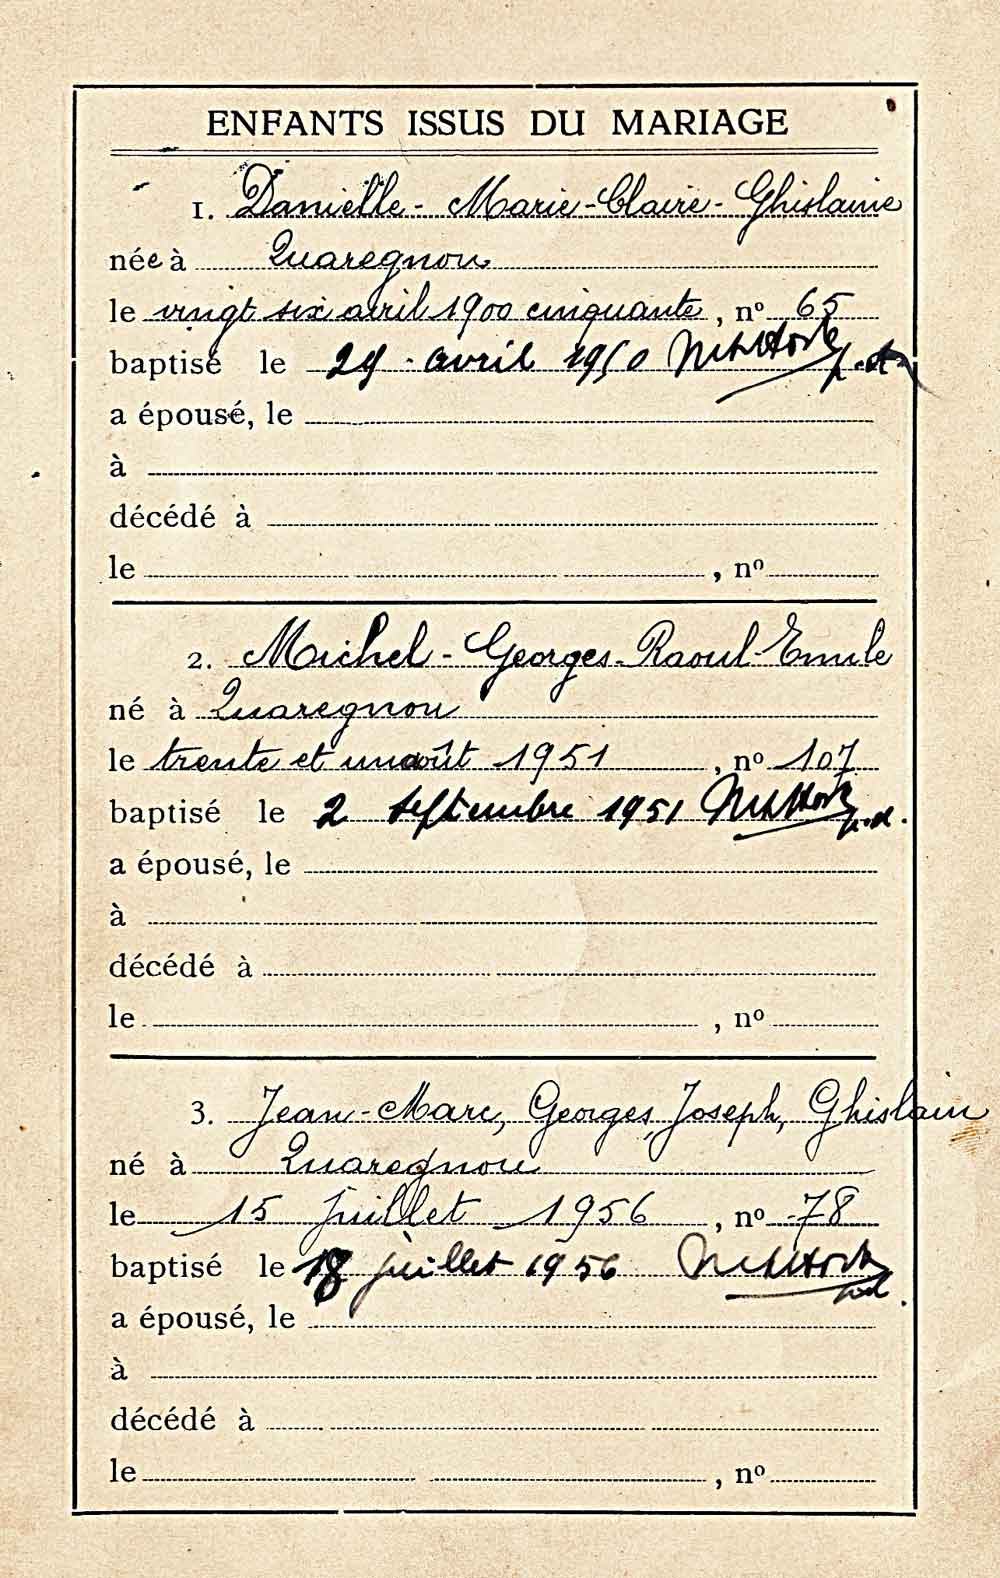 ENFANTS ISSUS DU MARIAGE
1. Danielle - Marie - Claire - Ghislaine
née à Quaregnon
le vingt six avril 1900 cinquante, nº 65
baptisé le 29 avril 1950
a épousé, le
à
décédé à
le , nº
2. Michel - Georges - Raoul - Emile
né à Quaregnon
le trente et un août 1951, nº 107
baptisé le 2 septembre 1951
a épousé, le
à
décédé à
le , nº
3. Jean - Marc, Georges, Joseph, Ghislain
né à Quaregnon
le 15 juillet 1956, nº 78
baptisé le 18 juillet 1956
a épousé, le
à
décédé à
le , nº